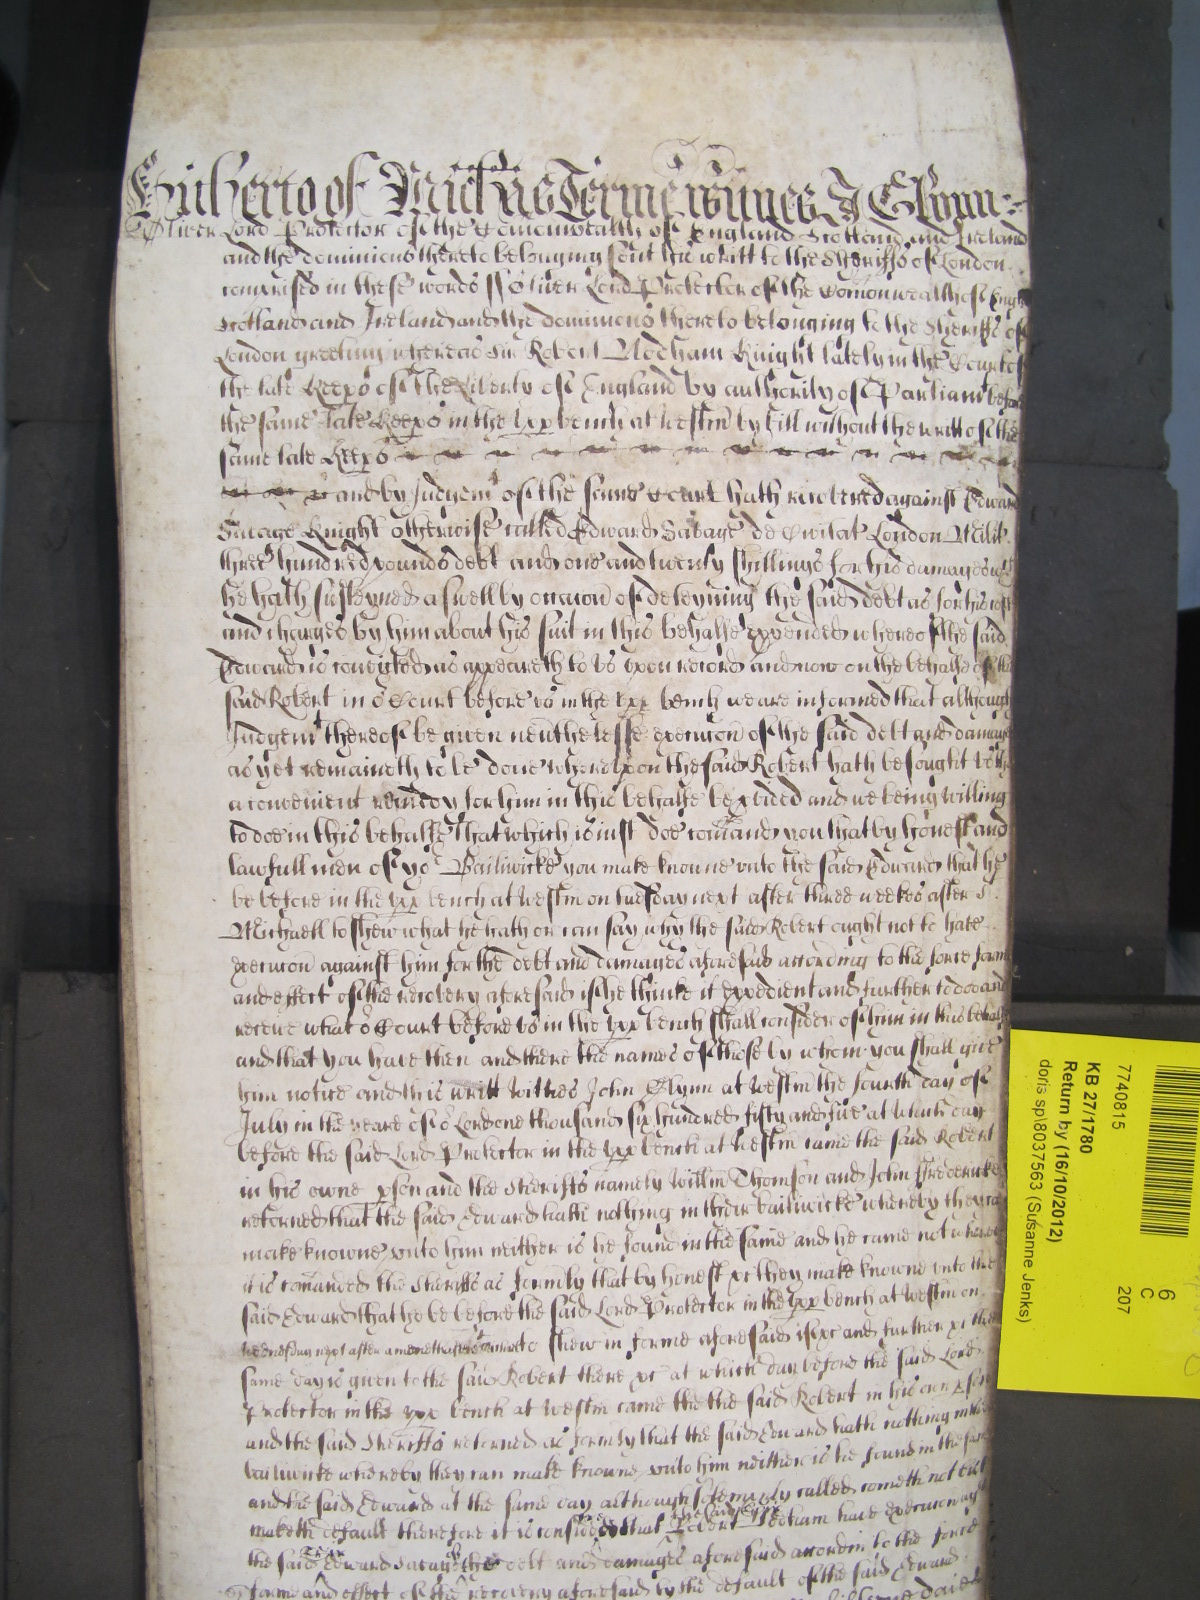 Hitherto of Mich'as Terme witnes J Glynn
Oliver Lord Protector of the Comonwealth of England Scotland and Ireland
and the dominions thereto belonging sent his writt to the Sheriffs of London
comprised in these words ss Oliver Lord Protector of the Comonwealth of Engl
Scotland and Ireland and the dominions thereto belonging to the Sheriffs of
London greeting whereas Sir Robert Nedham Knight lately in the Court of
the late Keeps of The Liberty of England by authority of Parliamt before
the same late Keeps in the upp bench at Westm by bill without the writt of the
same late Keeps
and by Judgemt of the same Court hath recovered against Edward
Savage Knight otherwise called Edward Savage de Civitat London Milit
three hundred pounds debt and one and twenty shillings for his damages wch
he hath susteyned aswell by occacon of deteyning the said debt as for his cost
and charges by him about his suit in this behalfe expended whereof the said
Edward is convicted as appeareth to us upon record and now on the behalfe of the
said Robert in o Court before us in the upp bench we are informed that although
Judgemt thereof be given nevthelesse execucon of the said debt and damages
as yet remaineth to be done whereupon the said Robert hath besought us the
a convenient remedy for him in this behalfe be pvided and we being willing
to doe in this behalfe that which is just doe comand you that by honest and
lawfull men of yo Bailiwicke you make knowne unto the said Edward that he
be before in the upp bench at Westm on Tuesday next after three weekes after S
Michaell to shew what he hath or can say why the said Robert ought not to have
execucon against him for the debt and damages aforesaid according to the force forme
and effect of the recovery aforesaid if he thinke it expedient and further to doe and
receive what o Court before us in the upp bench shall consider of him in this behalf
and that you have then and there the names of those by whom you shall give
him notice and this writt Witnes John Glynn at Westm the fourth day of
July in the yeare of o Lord one thousand six hundred fifty and five at which day
before the said Lord Protector in the upp bench at Westm came the said Robert
in his owne pson and the Sheriffs namely Willm Thomson and John Frederick
returned that the said Edward hath nothing in their bailiwicke whereby they can
make knowne unto him neither is he found in the same and he came not whereof
it is comanded the Sheriffs as formly that by honest xc they make knowne unto the
said Edward that he be before the said Lord Protector in the upp bench at Westm on
Wednesday next after to shew in forme aforesaid if xc and further xc the
same day is given to the said Robert there xc at which day before the said Lord
Protector in the upp bench at Westm came the the said Robert in his own pson
and the said Sheriffs returned as formly that the said Edward hath nothing in their
bailiwicke whereby they can make knowne unto him neither is he found in the same
and the said Edward at the same day although solemnly called cometh not but
maketh default therefore it is considered that the said Robert Nedham have execucon agt
the said Edward Savage of the debt and damages aforesaid accordin to the force
forme and effect of the recovery aforesaid by the default of the said Edward
7740815
KB 27/1780
Return by (16/10/2012)
doris sp\8037563 (Susanne Jenks)
6
C
207